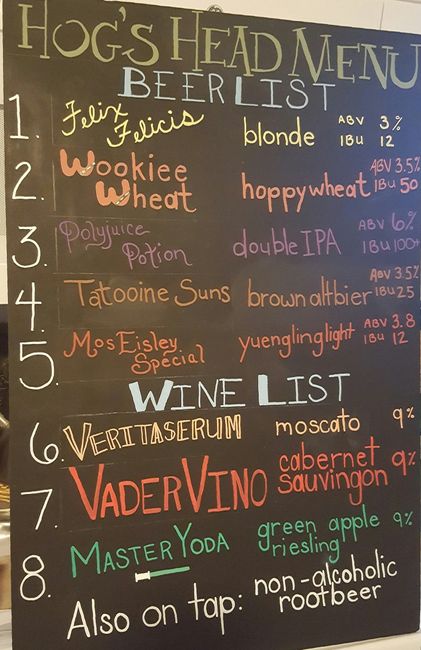 HOG'S HEAD MENU
BEER LIST
1. Felix Felicis blonde ABV 3% IBU 12
2. Wookiee Wheat hoppy wheat ABV 3.5% IBU 50
3. Polyjuice Potion double IPA ABV 6% IBU 100+
4. Tatooine Suns brown altbier ABV 3.5% IBU 25
5. Mos Eisley Special yuengling light ABV 3.8 IBU 12
WINE LIST
6. VERITASERUM moscato 9%
7. VADER VINO cabernet sauvingon 9%
8. MASTER YODA green apple riesling 9%
Also on tap: non-alcoholic rootbeer